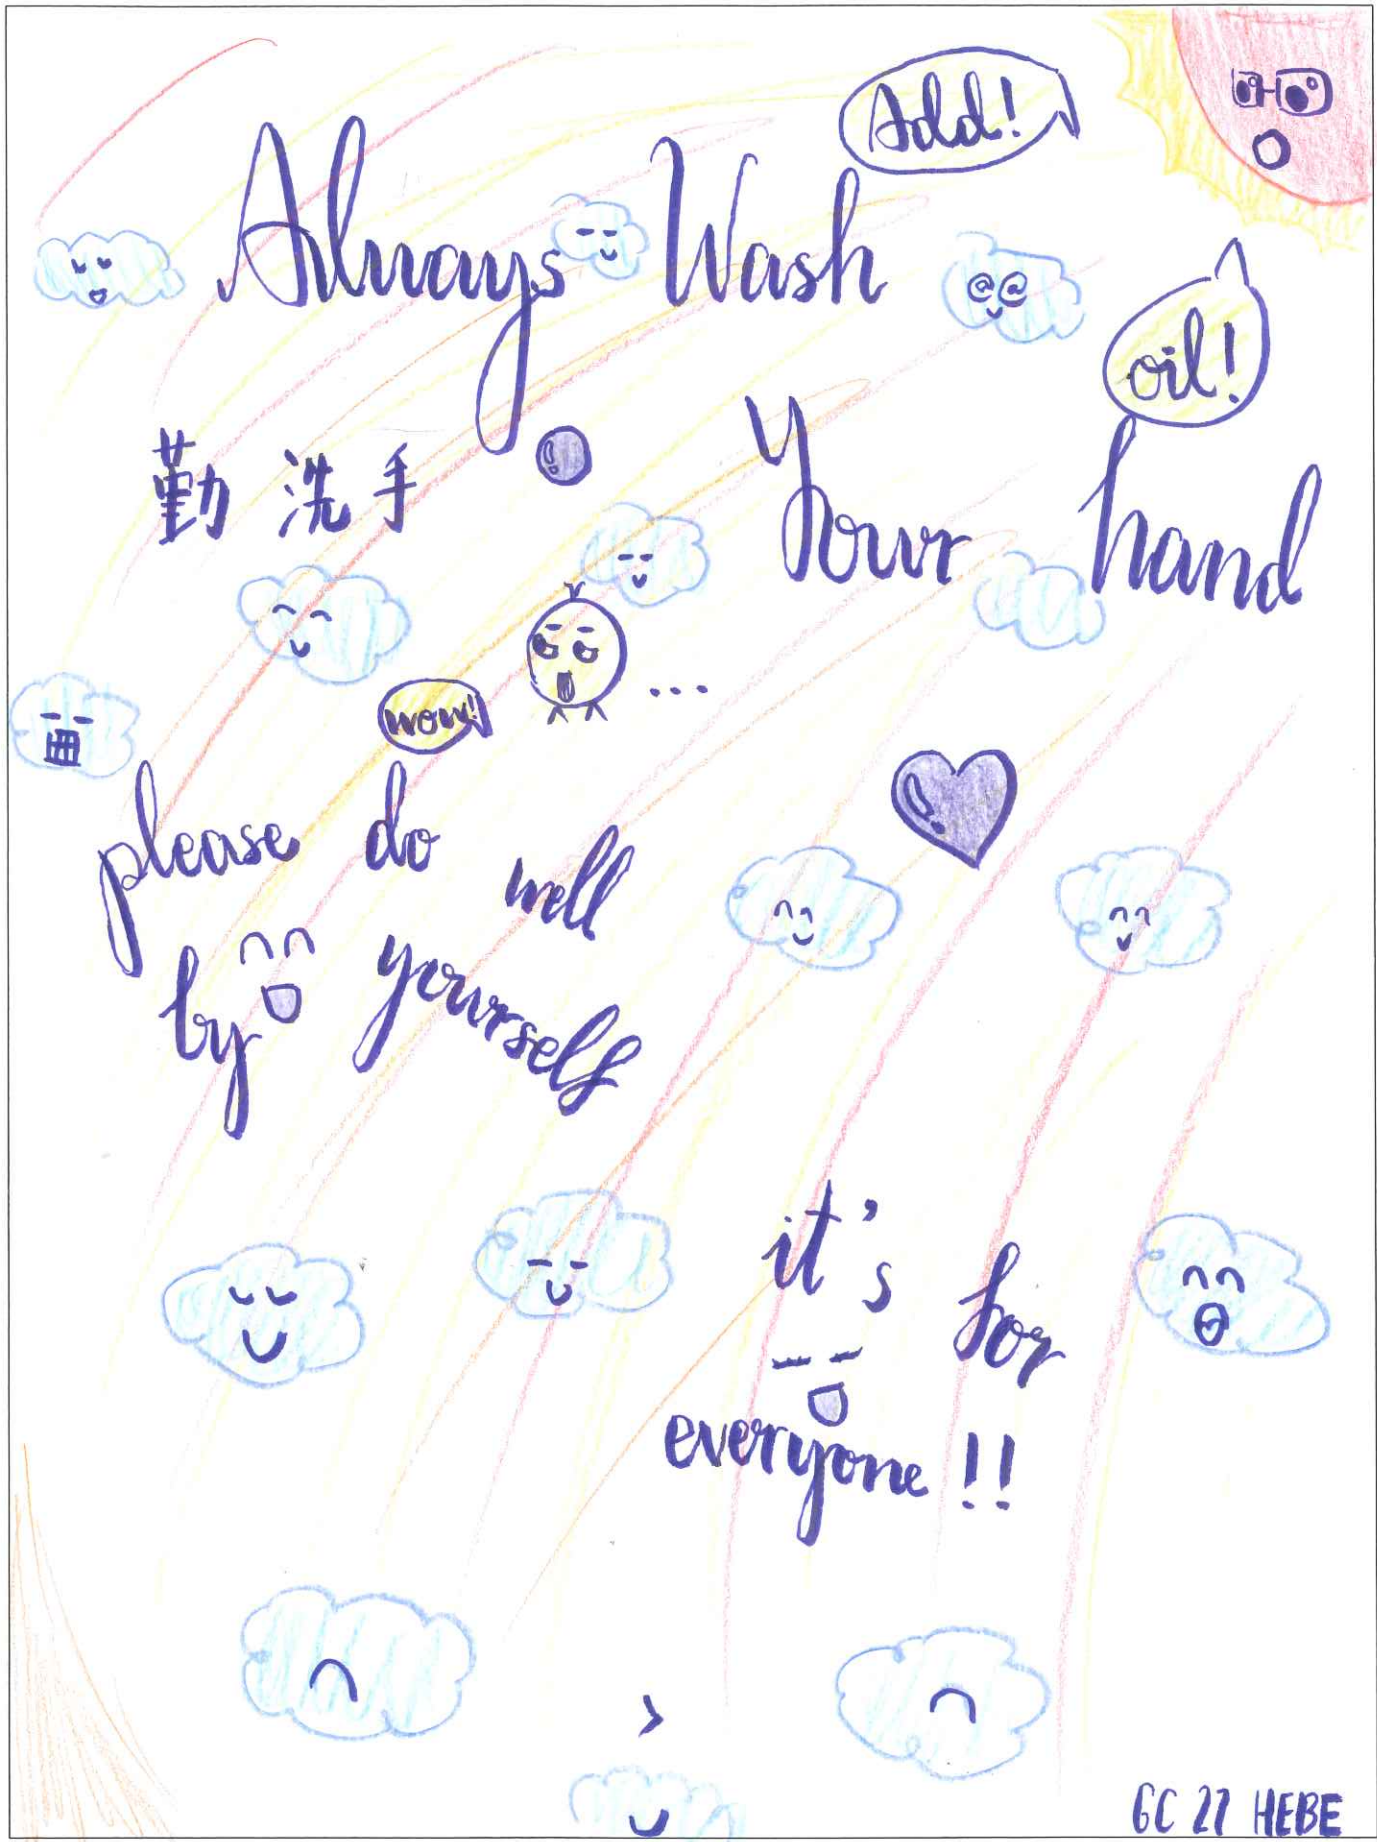 Add!
Always Wash
oil!
勤洗手
Your hand
wow!
...
please do well
by yourself
it's for
everyone!!
6C 27 HEBE